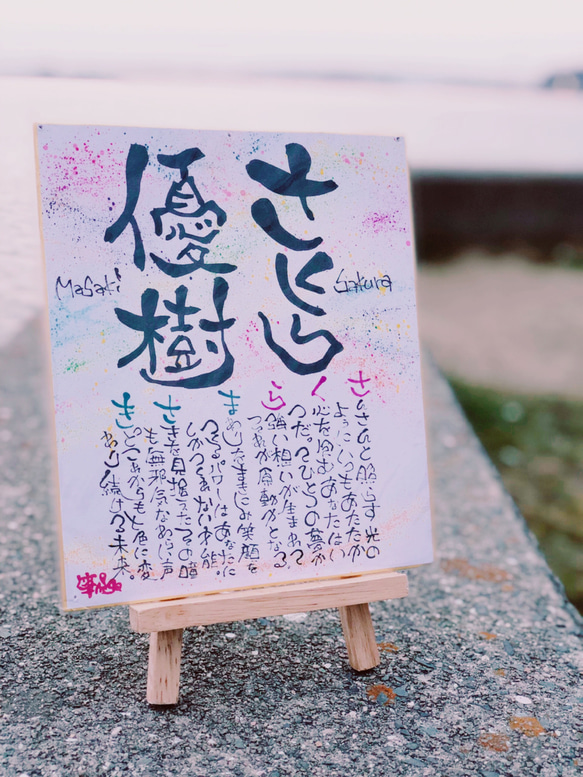 さくら
Sakura
優樹
Masaki
さ
んさんと照らす光の
ようにいつもあたたか
く
心を包むあなたはい
つだってひとつの夢が
ら
強い想いが生まれ
原動力となる
ま
笑顔を
つくるパワーはあなたに
しかつくれない才能。
さ
を見据えた二つの瞳
も無邪気な声
き
も七色に変
わり続ける未来。